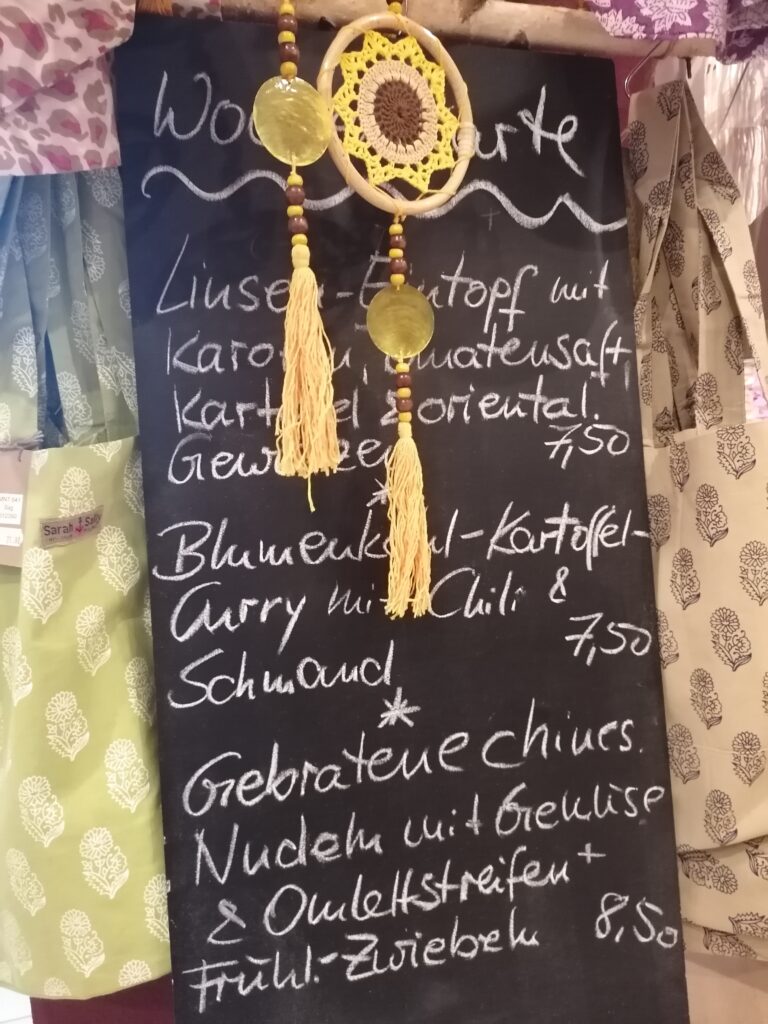 Linsen-Eintopf mit
Karotten, Tomatensaft,
Kartoffel & oriental.
Gewürzen 7,50
*
Blumenkohl-Kartoffel-
Curry mit Chili &
7,50
Schmand
*
Gebratene chines.
Nudeln mit Gemüse
& Omlettstreifen +
Frühl.-Zwiebeln 8,50
Sarah Sally